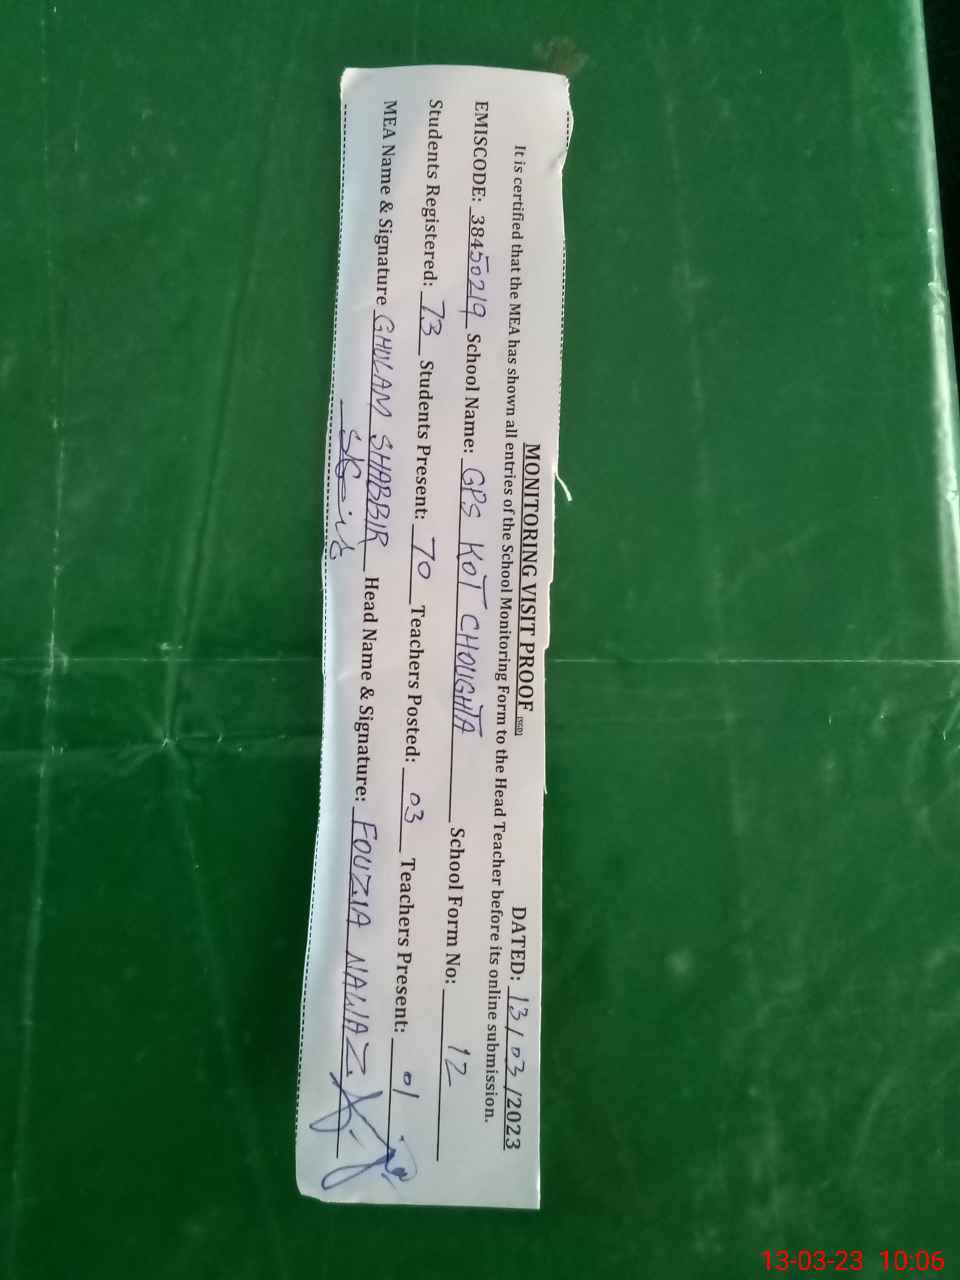 MONITORING VISIT PROOF (SGD) DATED: 13/03/2023
It is certified that the MEA has shown all entries of the School Monitoring Form to the Head Teacher before its online submission.
EMISCODE: 38450219 School Name: GPS KOT CHOUGHTA School Form No: 12
Students Registered: 73 Students Present: 70 Teachers Posted: 03 Teachers Present: 01
MEA Name & Signature GHULAM SHABBIR Head Name & Signature: FOUZIA NAWAZ
13-03-23 10:06